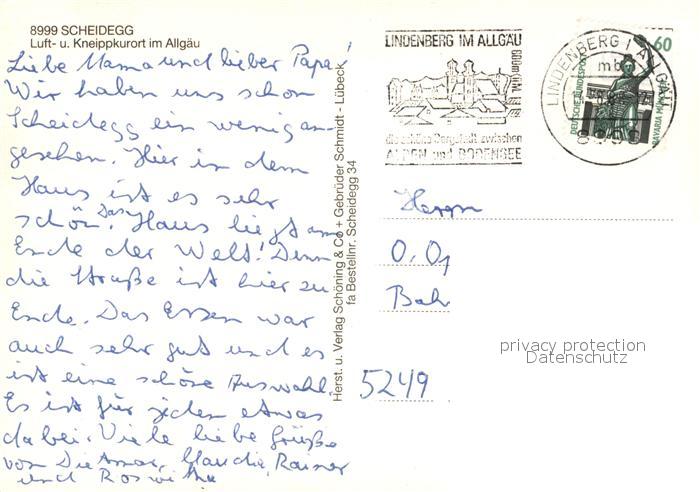 8999 SCHEIDEGG
Luft- u. Kneippkurort im Allgäu
Liebe Mama und lieber Papa!
Wir haben uns schon
Scheidegg ein wenig an-
gesehen. Hier in dem
Haus ist es sehr
schön. Das Haus liegt am
Ende der Welt! Denn
die Straße ist hier zu
Ende. Das Essen war
auch sehr gut und es
ist eine schöne Auswahl.
Es ist für jeden etwas
dabei. Viele liebe Grüße
von Dietmar, Claudia, Rainer
und Roswitha
Herst. u. Verlag Schöning & Co + Gebrüder Schmidt - Lübeck
fa Bestellnr. Scheidegg 34
LINDENBERG IM ALLGÄU
die schöne Bergstadt zwischen
ALPEN und BODENSEE
LINDENBERG I ALLGÄU
mb
60
DEUTSCHE BUNDESPOST
BAVARIA MÜNCHEN
Herrn
O. O,
Bah
5249
privacy protection
Datenschutz